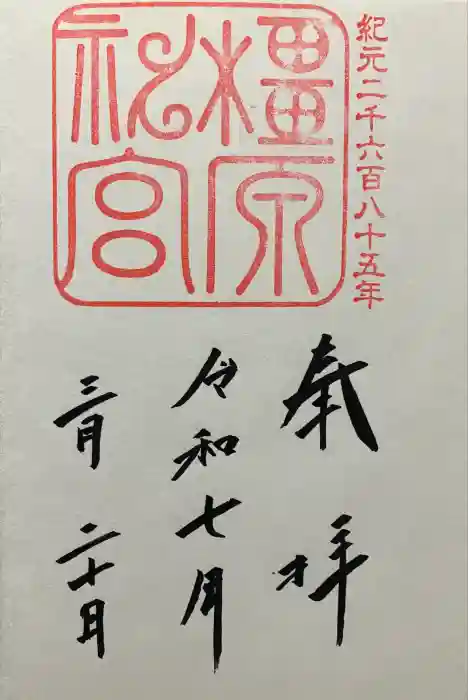 紀元二千六百八十五年
橿原
神宮
奉拝
令和七年
三月二十日